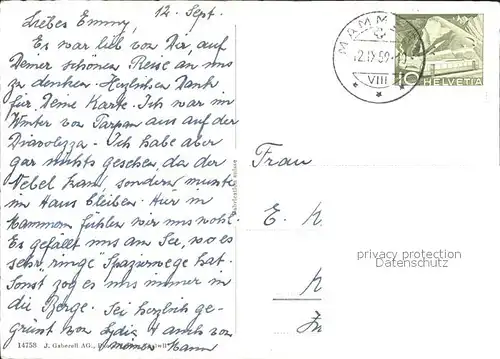 12. Sept.
Liebes Emmy,
Es war lieb von Dir, auf
Deiner schönen Reise an uns
zu denken. Herzlichen Dank
für Deine Karte. Ich war im
Winter von Tarpan aus auf der
Diavolezza - Ich habe aber
gar nichts gesehen, da der
Nebel kam, sondern musste
im Haus bleiben. Hier in
Mammern fühlen wir uns wohl.
Es gefällt uns am See, wo es
sehr "ringe" Spazierwege hat.
Sonst zog es uns immer in
die Berge. Sei herzlich ge-
grüsst von Lydia & auch von
meinem Mann
14758 J. Gaberell AG.,
MAMMERN
12.IX.59
VIII
10 HELVETIA
Frau
E.
privacy protection
Datenschutz